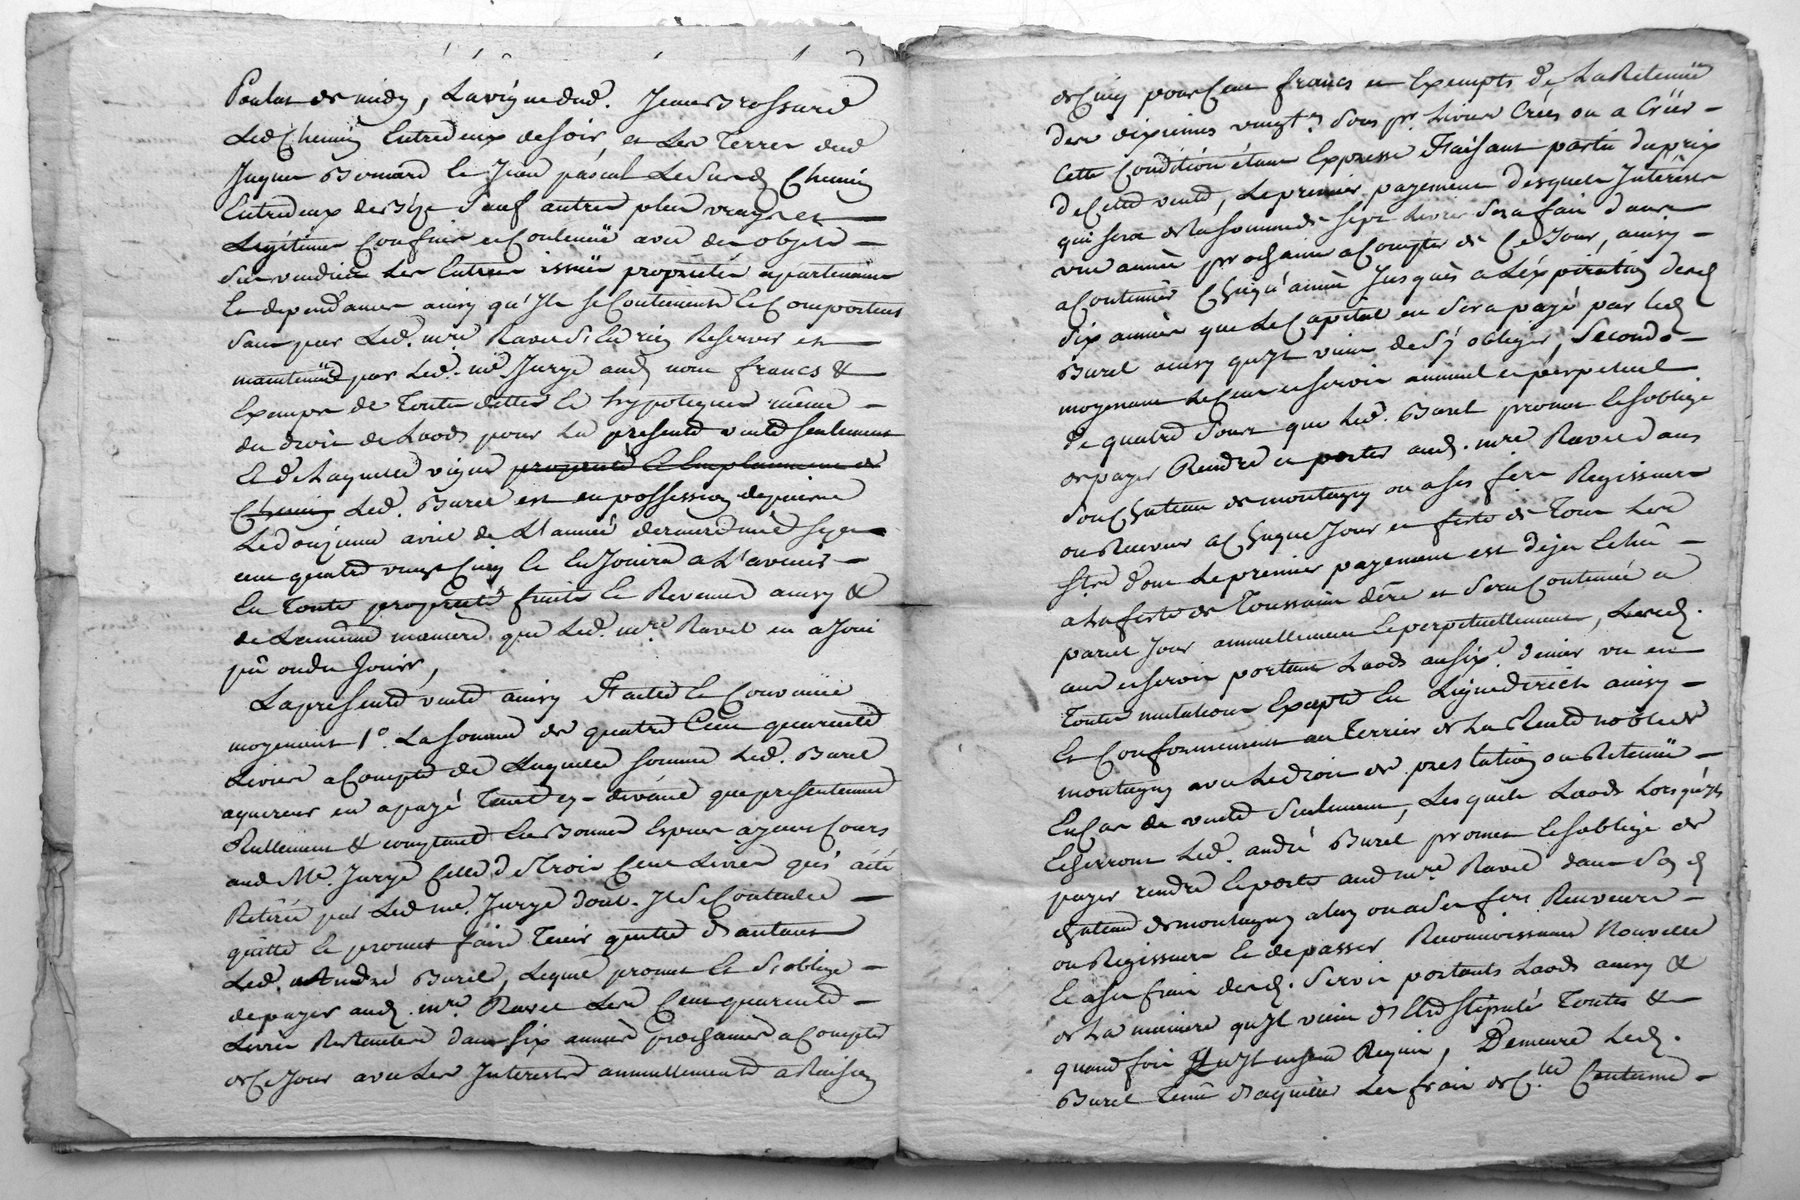 de midy, La vigne dud. Jean Brossard
Led. Chemin Entredeux de soir, et Les Terres dud
Jaques Bernard et Jean pascal Le Susd. Chemin
Entredeux de Bize Sauf autres plus vrays et
Legitimes Confins et Contenüe avec des objets
Sus vendües Les Entrées issües proprietés apartenances
et dependances ainsy qu'Ils se Contiennent et Comportent
Sans par Led. mre. Ravel S'En rien Reserver et
maintenüe par Led. me. Jurye aud. nom francs &
Exempts de toutes dettes et hypoteques même
du droit de Laods pour La presente vente seulement
et de Laquelle vigne propriété et Emplacement de
Chemin Led. Burel est en possession depuis
Le onzieme avril de L'année derniere mil sept
cent quatre vingt Cinq et En Jouira a L'avenir
En toute proprieté fruits et Revenus ainsy &
de La même maniere que Led. mre. Ravel en a Joui
pû ou du Jouir,
La presente vente ainsy faite et Convenüe
moyenant 1°. La somme de quatre Cent quarente
Livres a Compte de Laquelle somme Led. Burel
aquereur en a payé tant cy-devant que presentement
Réellement & comptant En Bonnes Especes ayant Cours
aud. Me. Jurye Celle de trois Cent Livres qui a été
Retirée par Led. me. Jurye dont Il se Contente
quitte et promet faire tenir quitte d'autant
Led. André Burel, Lequel promet et s'oblige
de payer aud. mre. Ravel Les Cent quarente
Livres Restantes dans six années prochaines a Compter
de Ce Jour avec Les Interests annuellement a Raison
de Cinq pour Cent francs et Exempts de La Retenüe
des dixiemes vingt. Sous pr. Livres Créés ou a Créer
Cette Condition étant Expresse Faisant partie du prix
de Cette vente, Le premier payement desquels Intérests
qui sera de La somme de sept Livres sera fait dans
une année prochaine a Compter de Ce Jour, ainsy
a Continüer Chaqu'année Jusques a L'éxpiration desd.
six années que Le Capital en sera payé par Led.
Burel ainsy qu'Il vient de S'y obliger, Secondo
moyenant Le Cens et servis annuel et perpetuel
de quatre Sous que Led. Burel promet et s'oblige
de payer Rendre et porter aud. mre. Ravel dans
son Chateau de montagny ou a ses fers Regisseurs
ou Receveurs a Chaque Jour et feste de Tous Les
Sts. dont Le premier payement est dejea Echû
a La feste de Toussaint dere et sera Continüé a
pareil Jour annuellement et perpetuellement, Lesd.
cens et servis portant Laods au six. denier vn en
toutes mutations Excepté En Ligne directe ainsy
et Conformement au terrier de La Rente noble de
montagny avec Le droit de prestation ou Retenüe
En Cas de vente seulement, Lesquels Laods Lorsqu'Ils
Echerront Led. andré Burel promet et s'oblige de
payer rendre et porter aud. mre. Ravel dans Sond.
chateau de montagny a Luy ou a Ses fers Receveurs
ou Regisseurs et de passer Reconnoissance Nouvelle
et a ses frais desd. servis portants Laods ainsy &
de La maniere qu'Il vient d'Etre stipulé toutes &
quand fois qu'Il en sera Requis, Demeure Led.
Burel tenu d'aquitter Les frais de Ctte